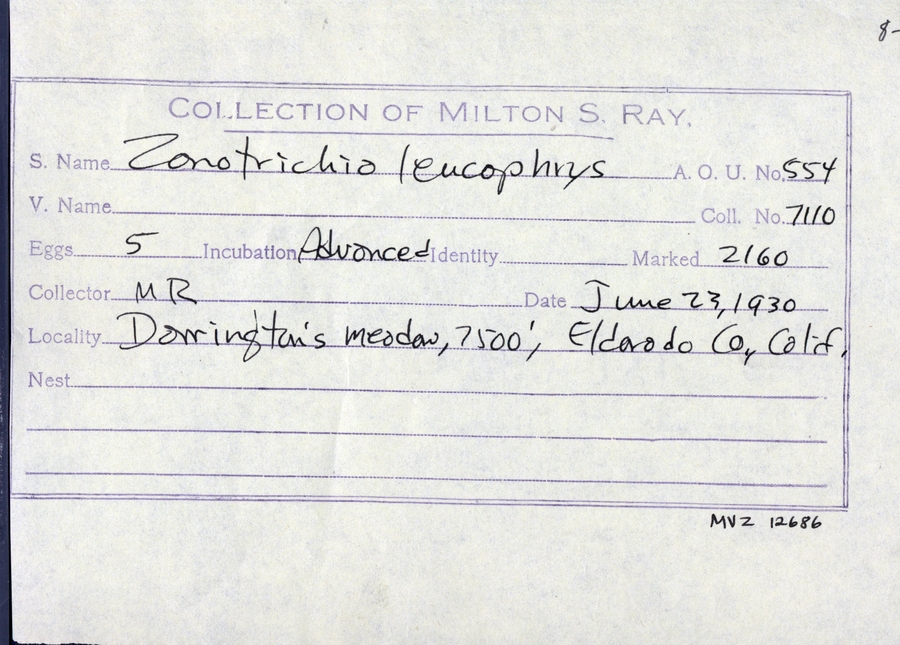 8-
COLLECTION OF MILTON S. RAY.
S. Name Zonotrichia leucophrys A. O. U. No. 554
V. Name Coll. No. 7110
Eggs 5 Incubation Advanced Identity Marked 2160
Collector MR Date June 23, 1930
Locality Dorrington's meadow, 7500', Eldorado Co, Calif.
Nest
MVZ 12686